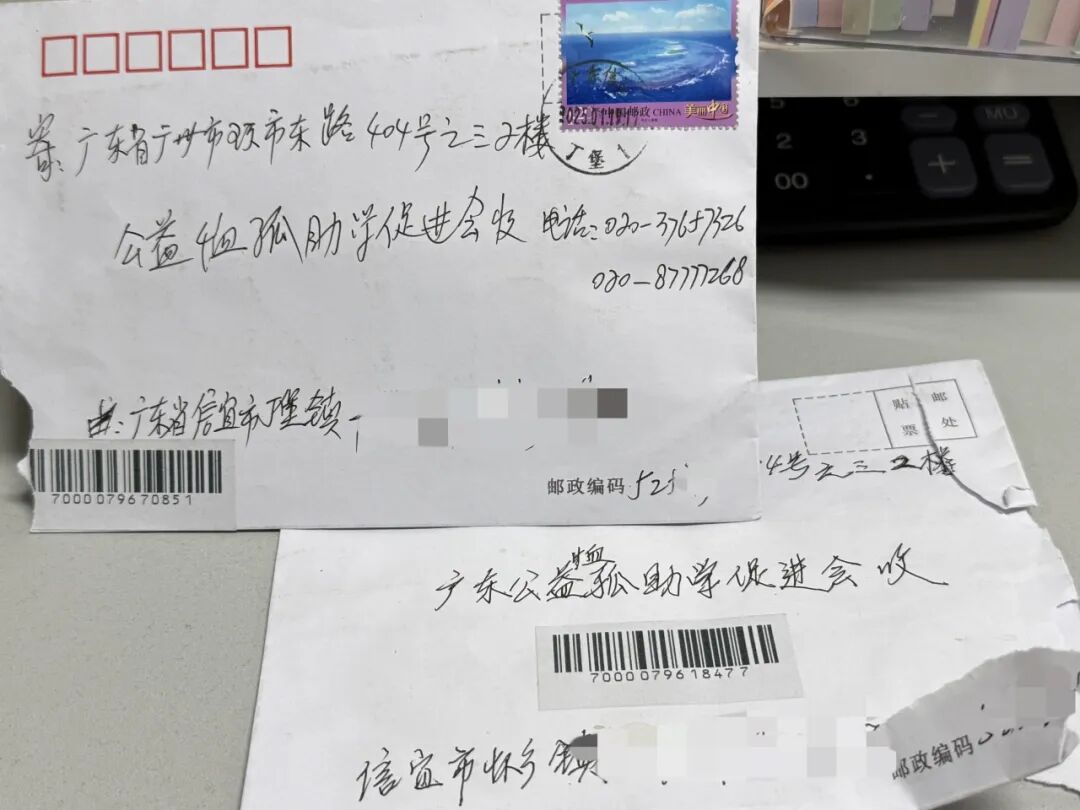 寄:广东省广州市环市东路404号之三2楼
公益恤孤助学促进会收 电话:020-37657326
020-87777268
中国邮政 CHINA 美丽中国
由:广东省信宜市丁堡镇
7000079670851
邮政编码 525
贴票 邮处
4号之三2楼
广东公益恤孤助学促进会收
7000079618477
信宜市怀乡镇
邮政编码
2
3
00
.
+
=
MU